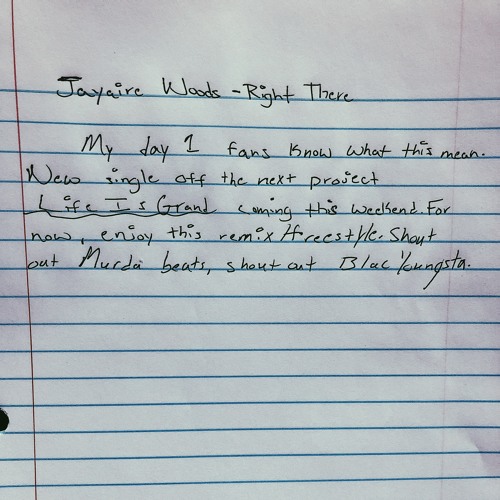 Jayaire Woods - Right There
My day 1 fans know what this mean.
New single off the next project
Life Is Grand coming this weekend. For
now, enjoy this remix/freestyle. Shout
out Murda beats, shout out Blac Youngsta.